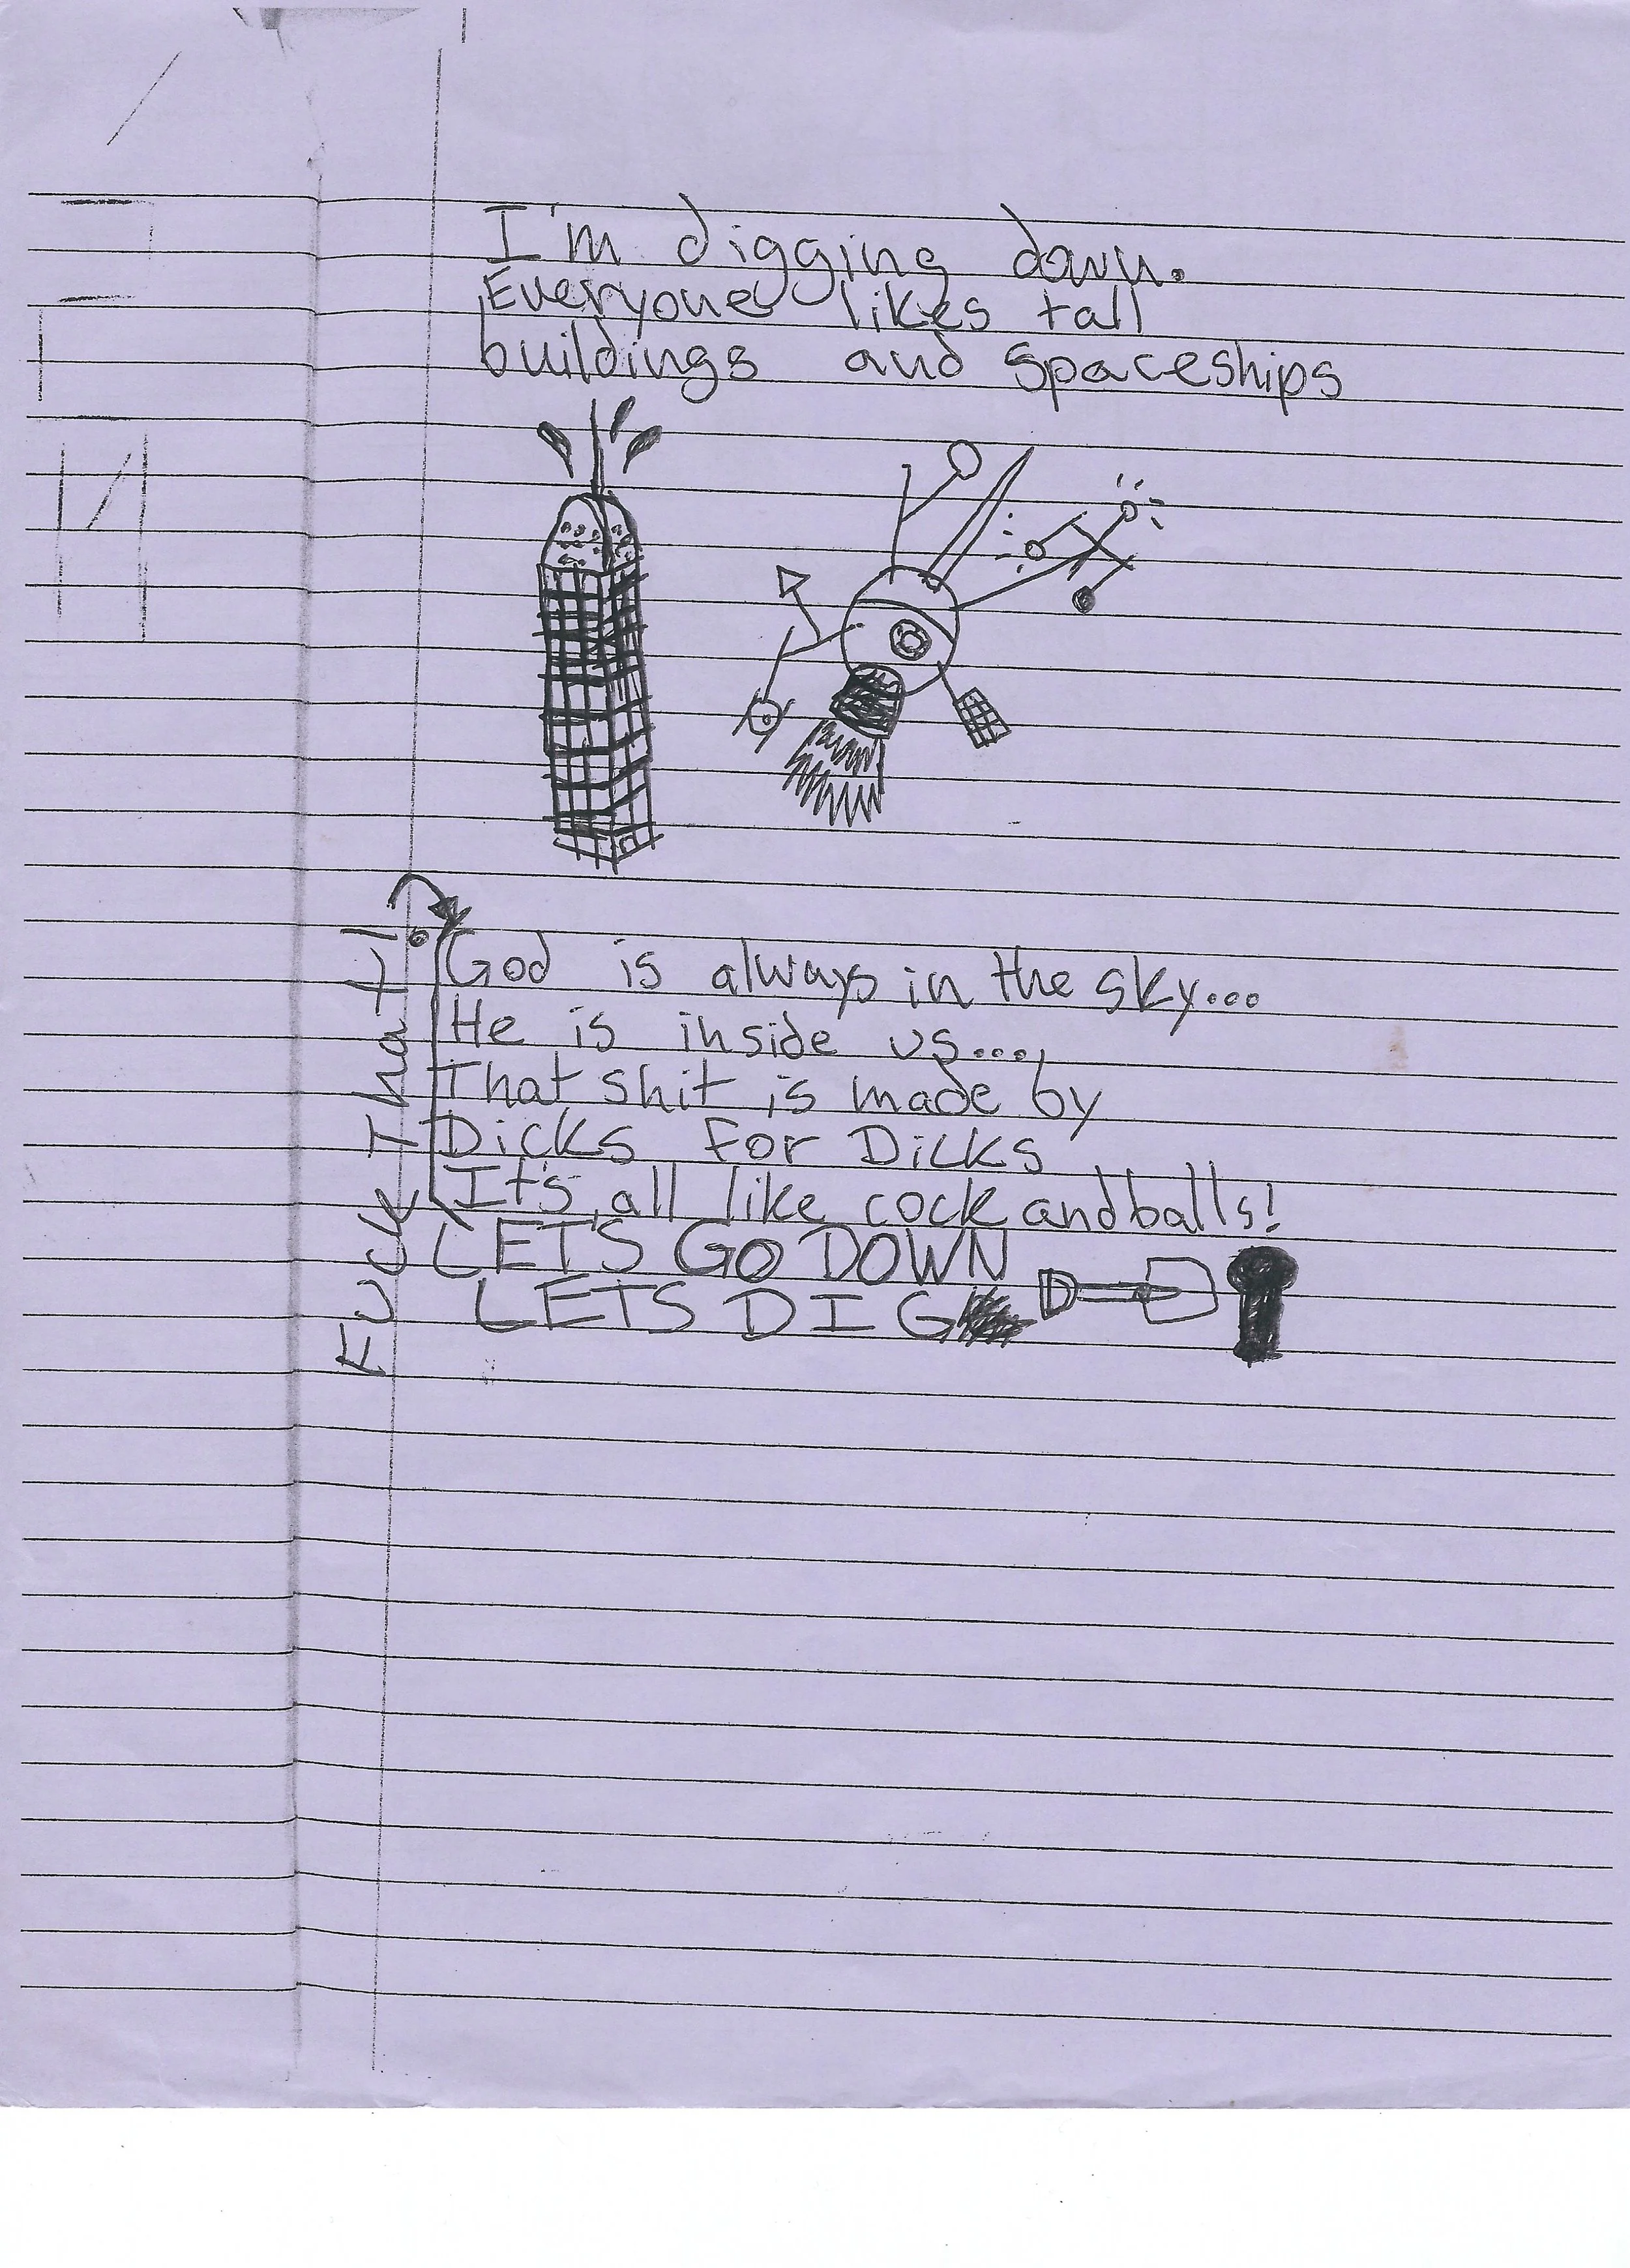 I'm digging down.
Everyone likes tall
buildings and spaceships
Fuck That!
God is always in the sky...
He is inside us....
That shit is made by
Dicks for Dicks
It's all like cock and balls!
LET'S GO DOWN
LETS DIG